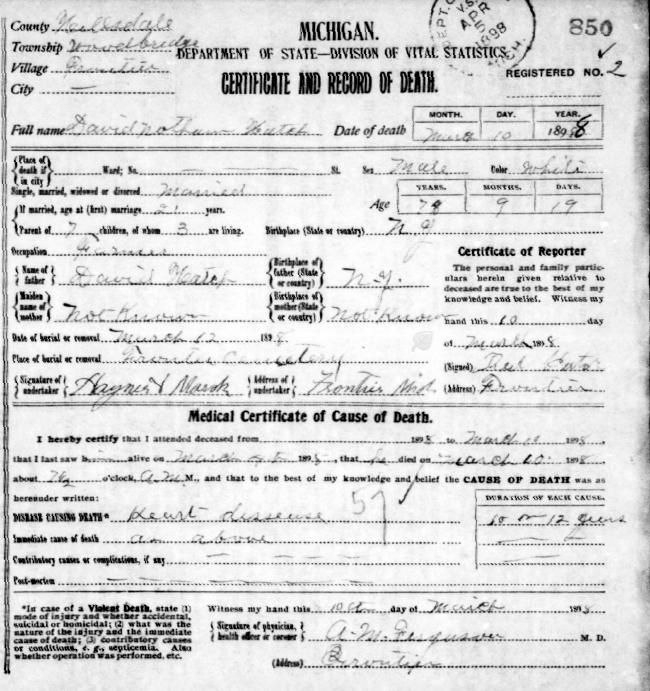 County Hillsdale
Township Woodbridge
Village Frontier
City —
MICHIGAN.
DEPARTMENT OF STATE—DIVISION OF VITAL STATISTICS.
CERTIFICATE AND RECORD OF DEATH.
APR 5 1898
850
REGISTERED NO. 2
Full name David Hatch Date of death
MONTH. DAY. YEAR.
March 10 1898
Place of death if in city Ward; No. — — — St. Sex Male Color White
Single, married, widowed or divorced Married
If married, age at (first) marriage 21 years.
Age
YEARS. MONTHS. DAYS.
78 9 19
Parent of 7 children, of whom 3 are living. Birthplace (State or country) N Y
Occupation Farmer
Name of father David Hatch Birthplace of father (State or country) N.Y.
Maiden name of mother Not Known Birthplace of mother (State or country) Not Known
Date of burial or removal March 12 1898
Place of burial or removal Frontier Cemetery
Signature of undertaker Address of undertaker Frontier Mich
Certificate of Reporter
The personal and family particulars herein given relative to
deceased are true to the best of my
knowledge and belief. Witness my
hand this 10 day
of March 1898
(Signed)
(Address) Frontier
Medical Certificate of Cause of Death.
I hereby certify that I attended deceased from 1898 to March 10 1898,
that I last saw him alive on March 1898, that he died on March 10 1898
about o'clock, A.M. M., and that to the best of my knowledge and belief the CAUSE OF DEATH was as
hereunder written:
DURATION OF EACH CAUSE.
DISEASE CAUSING DEATH* Heart disease 10 or 12 years
Immediate cause of death as above — —
Contributory causes or complications, if any — — — —
Post-mortem — — — —
*In case of a Violent Death, state (1)
mode of injury and whether accidental,
suicidal or homicidal; (2) what was the
nature of the injury and the immediate
cause of death; (3) contributory causes
or conditions, e. g., septicemia. Also
whether operation was performed, etc.
Witness my hand this 10th day of March 1898
Signature of physician, health officer or coroner A. M. Ferguson M. D.
(Address) Frontier